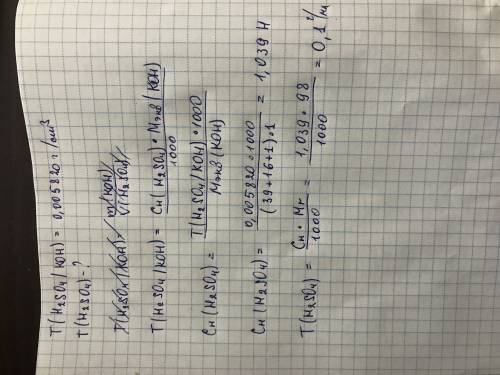 T(H₂SO₄/KOH) = 0,005820 г/см³
T(H₂SO₄) - ?
T(H₂SO₄/KOH) = m(KOH)/V(H₂SO₄)
T(H₂SO₄/KOH) = Cн(H₂SO₄) • Mэкв(KOH) / 1000
Cн(H₂SO₄) = T(H₂SO₄/KOH) • 1000 / Mэкв(KOH)
Cн(H₂SO₄) = 0,005820 • 1000 / (39+16+1) • 1 = 1,039 Н
T(H₂SO₄) = Cн • Mr / 1000 = 1,039 • 98 / 1000 = 0,1 г/мл